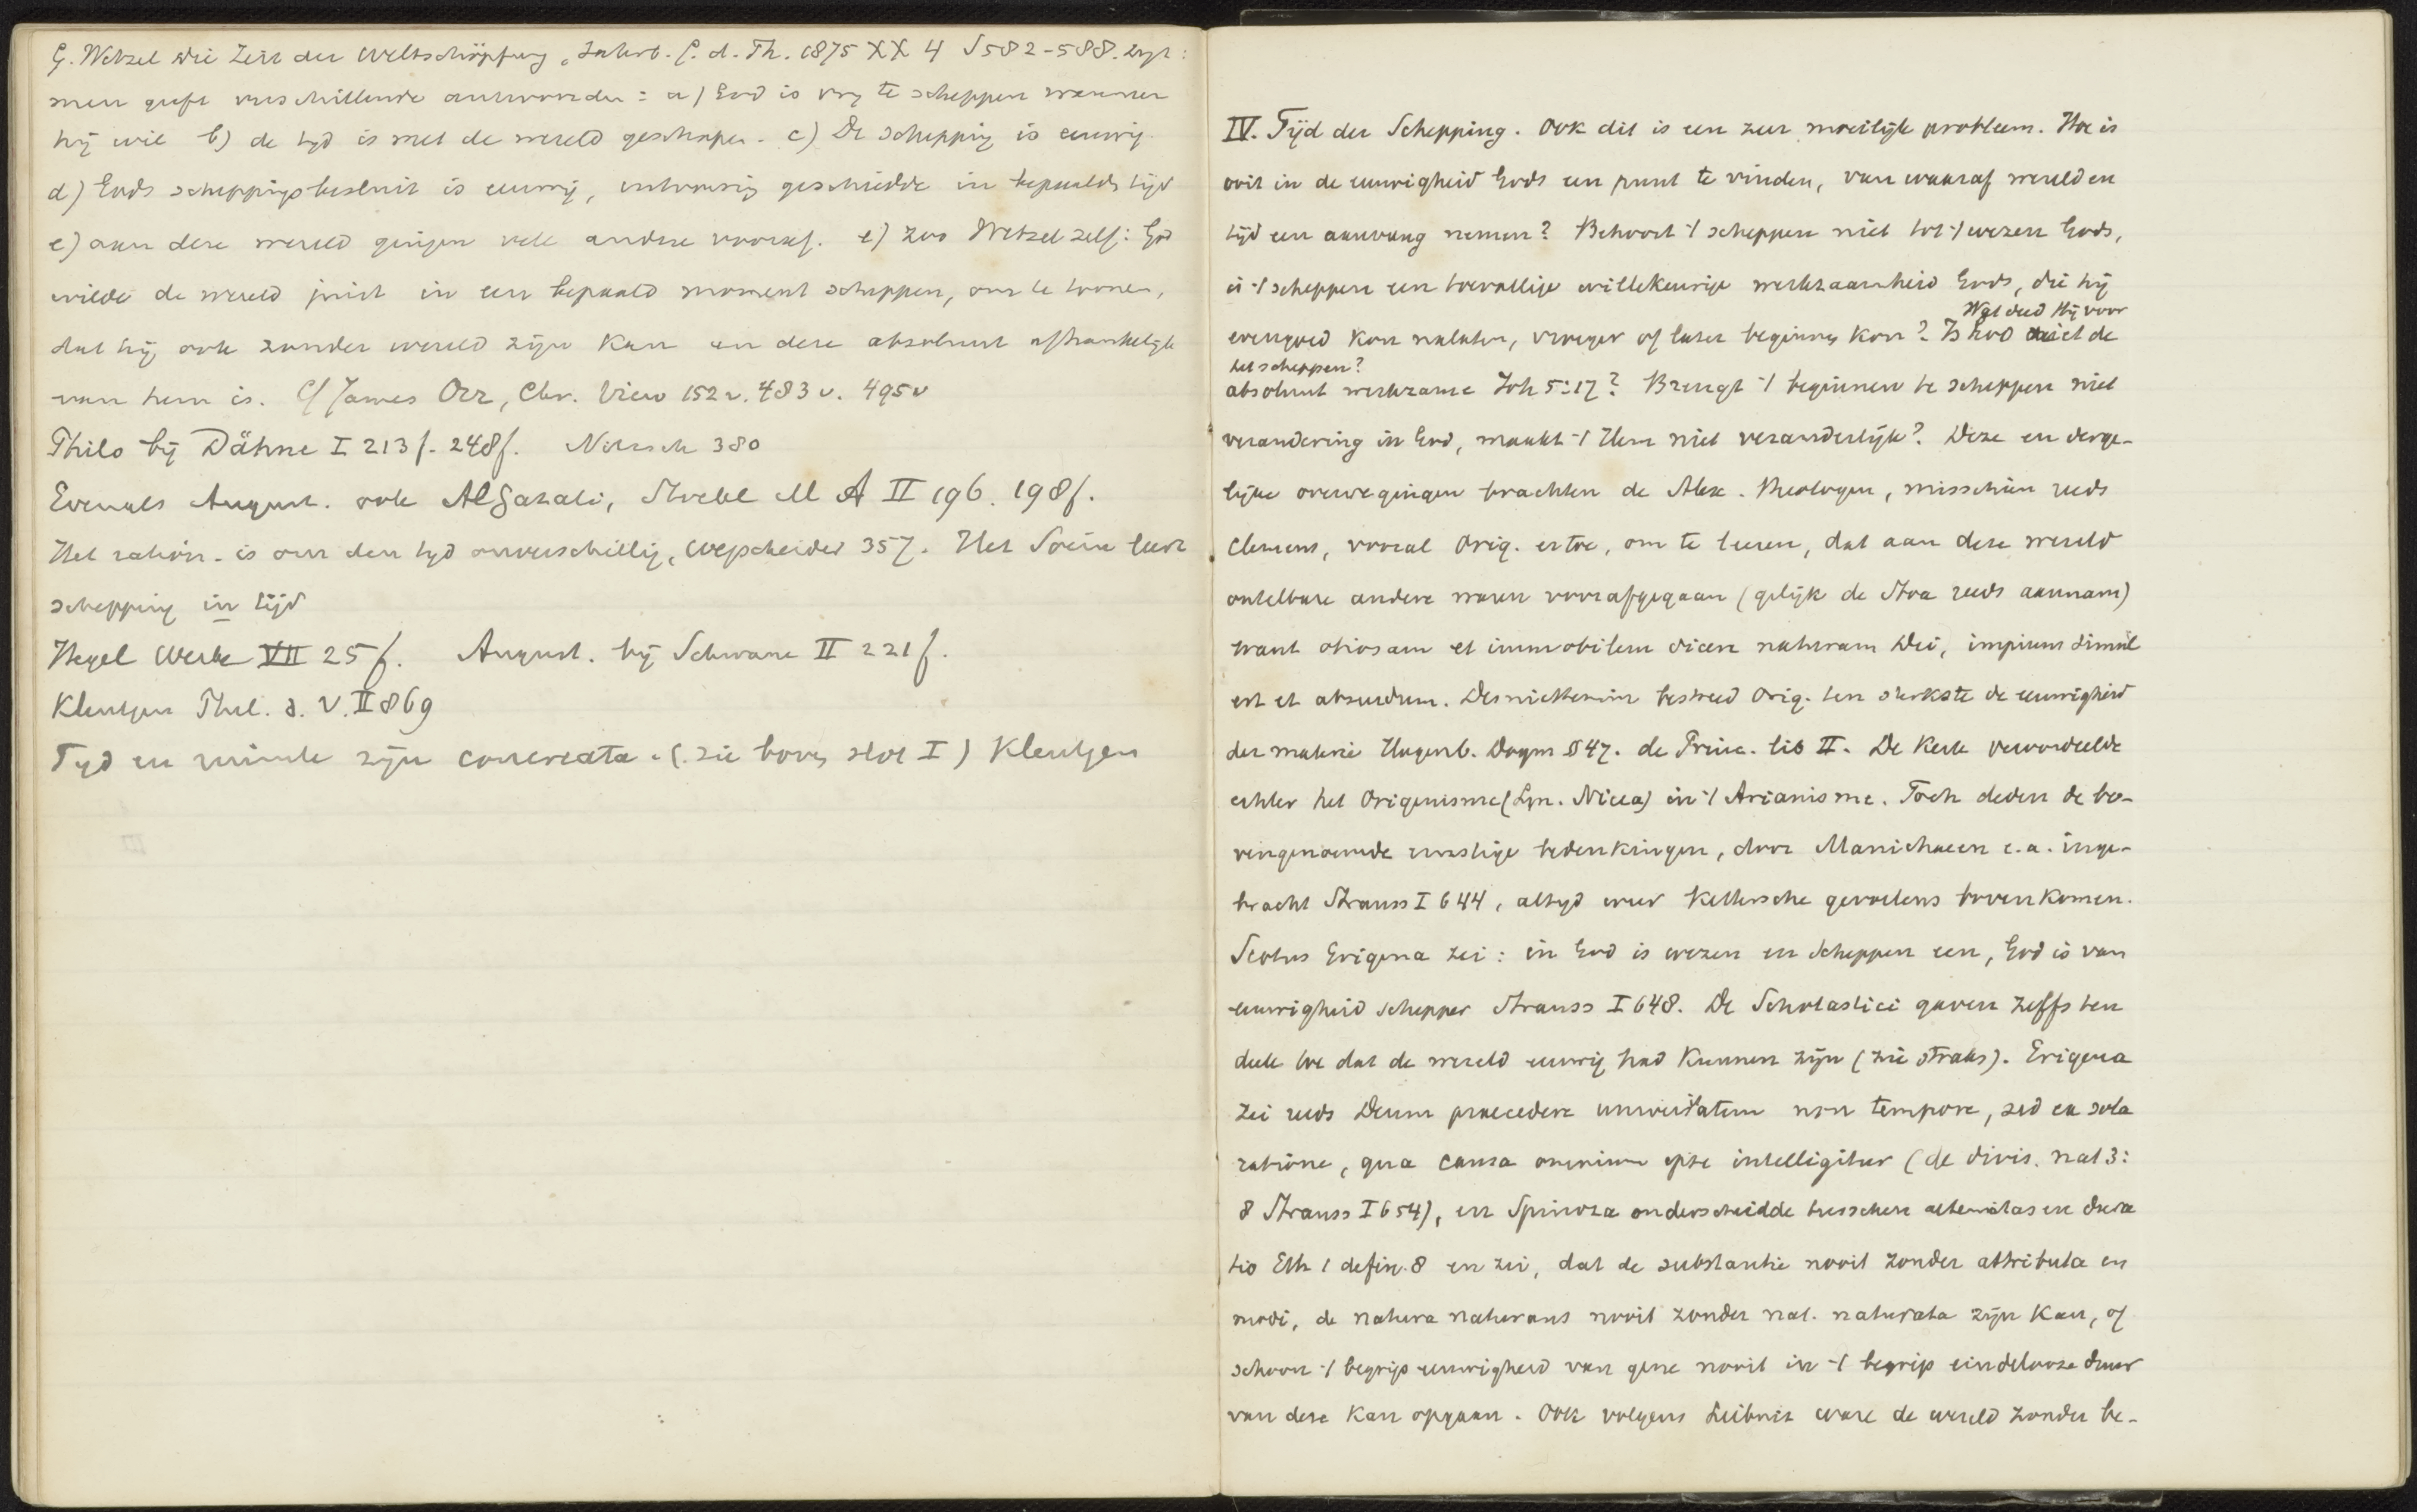 G. Wetzel Die Zeit der Weltschöpfung, Jahrb. f. d. Th. 1875 XX 4 S 582-588. zegt:
men geeft verschillende antwoorden: a) God is vrij te scheppen wanneer
hij wil b) de tijd is met de wereld geschapen. c) De schepping is eeuwig.
d) Gods scheppingsbesluit is eeuwig, geschiedde in bepaalde tijd
e) aan deze wereld gingen vele andere vooraf. e) Zoo Wetzel zelf: God
wilde de wereld juist in een bepaald moment scheppen, om te toonen,
dat hij ook zonder wereld zijn kan en deze absoluut afhankelijk
van hem is. Cf James Orr, Chr. View 152 v. 483 v. 495 v
Philo bij Dähne I 213 f. 248 f. Nitzsch 380
Evenals August. ook AlGazali, Stöckl M A II 196. 198 f.
Het ration. is om den tijd onverschillig, Wegscheider 357. Het Socin. leert
schepping in tijd
Hegel Werke VII 25 f. August. bij Schwane II 221 f.
Kleutgen Phil. d. V. II 869
Tijd en ruimte zijn concreata. (zie boven slot I) Kleutgen
IV. Tijd der Schepping. Ook dit is een zeer moeilijk probleem. Hoe is
ooit in de eeuwigheid Gods een punt te vinden, van waaraf wereld en
tijd een aanvang nemen? Behoort 't scheppen niet tot 't wezen Gods,
is 't scheppen een toevallige willekeurige werkzaamheid Gods, die hij
evengoed kon nalaten, vroeger of later beginnen kon? Wat deed Hij voor
het scheppen? Is God niet de
absoluut werkzame Joh 5:17? Brengt 't beginnen te scheppen niet
verandering in God, maakt 't Hem niet veranderlijk? Deze en derge-
lijke overwegingen brachten de Alex. theologen, misschien reeds
Clemens, vooral Orig. ertoe, om te leeren, dat aan deze wereld
ontelbare andere waren voorafgegaan (gelijk de Stoa reeds aannam)
want otiosam et immobilem dicere naturam Dei, impium simul
est et absurdum. Desniettemin bestreed Orig. ten sterkste de eeuwigheid
der materie Hagenb. Dogm § 47. de Princ. lib II. De Kerk veroordeelde
echter het Origenisme (Syn. Nicea) in 't Arianisme. Toch deden de bo-
vengenoemde ernstige bedenkingen, door Manichaeen e.a. inge-
bracht Strauss I 644, altijd weer kettersche gevoelens bovenkomen.
Scotus Erigena zei: in God is wezen en scheppen een, God is van
eeuwigheid schepper Strauss I 648. De Scholastici gaven zelfs ten
deele toe dat de wereld eeuwig had kunnen zijn (zie straks). Erigena
zei reeds Deum praecedere universitatem non tempore, sed ea sola
ratione, qua causa omnium ipse intelligitur (de divis. nat 3:
8 Strauss I 654), en Spinoza onderscheidde tusschen aeternitas en dura
tio Eth 1 defin. 8 en zei, dat de substantie nooit zonder attributa en
modi, de natura naturans nooit zonder nat. naturata zijn kan, of
schoon 't begrip eeuwigheid van gene nooit in 't begrip eindelooze duur
van deze kan opgaan. Ook volgens Leibniz ware de wereld zonder be-